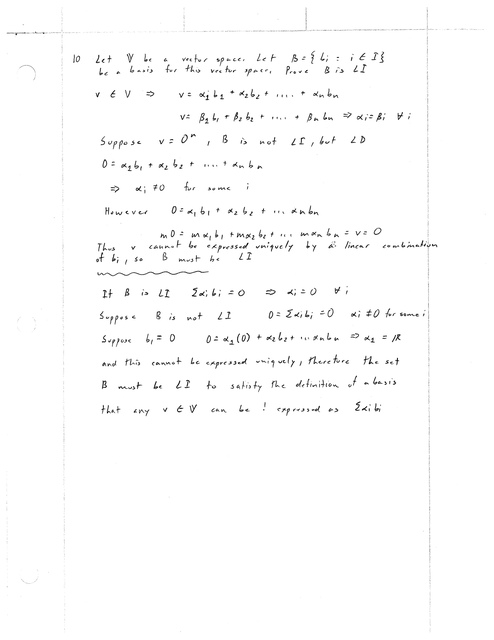 10 Let 𝕍 be a vector space. Let B = { bi : i ∈ I }
be a basis for this vector space. Prove B is LI
v ∈ V ⇒ v = α1b1 + α2b2 + .... + αnbn
v = β1b1 + β2b2 + .... + βnbn ⇒ αi = βi ∀i
Suppose v = 0ⁿ, B is not LI, but LD
0 = α1b1 + α2b2 + .... + αnbn
⇒ αi ≠ 0 for some i
However 0 = α1b1 + α2b2 + ... αnbn
m0 = mα1b1 + mα2b2 + ... mαnbn = v = 0
Thus v cannot be expressed uniquely by a linear combination
of bi, so B must be LI
If B is LI Σαibi = 0 ⇒ αi = 0 ∀i
Suppose B is not LI 0 = Σαibi = 0 αi ≠ 0 for some i
Suppose b1 = 0 0 = α1(0) + α2b2 + ... αnbn ⇒ α1 = ℝ
and this cannot be expressed uniquely, therefore the set
B must be LI to satisfy the definition of a basis
that any v ∈ V can be ! expressed as Σαibi